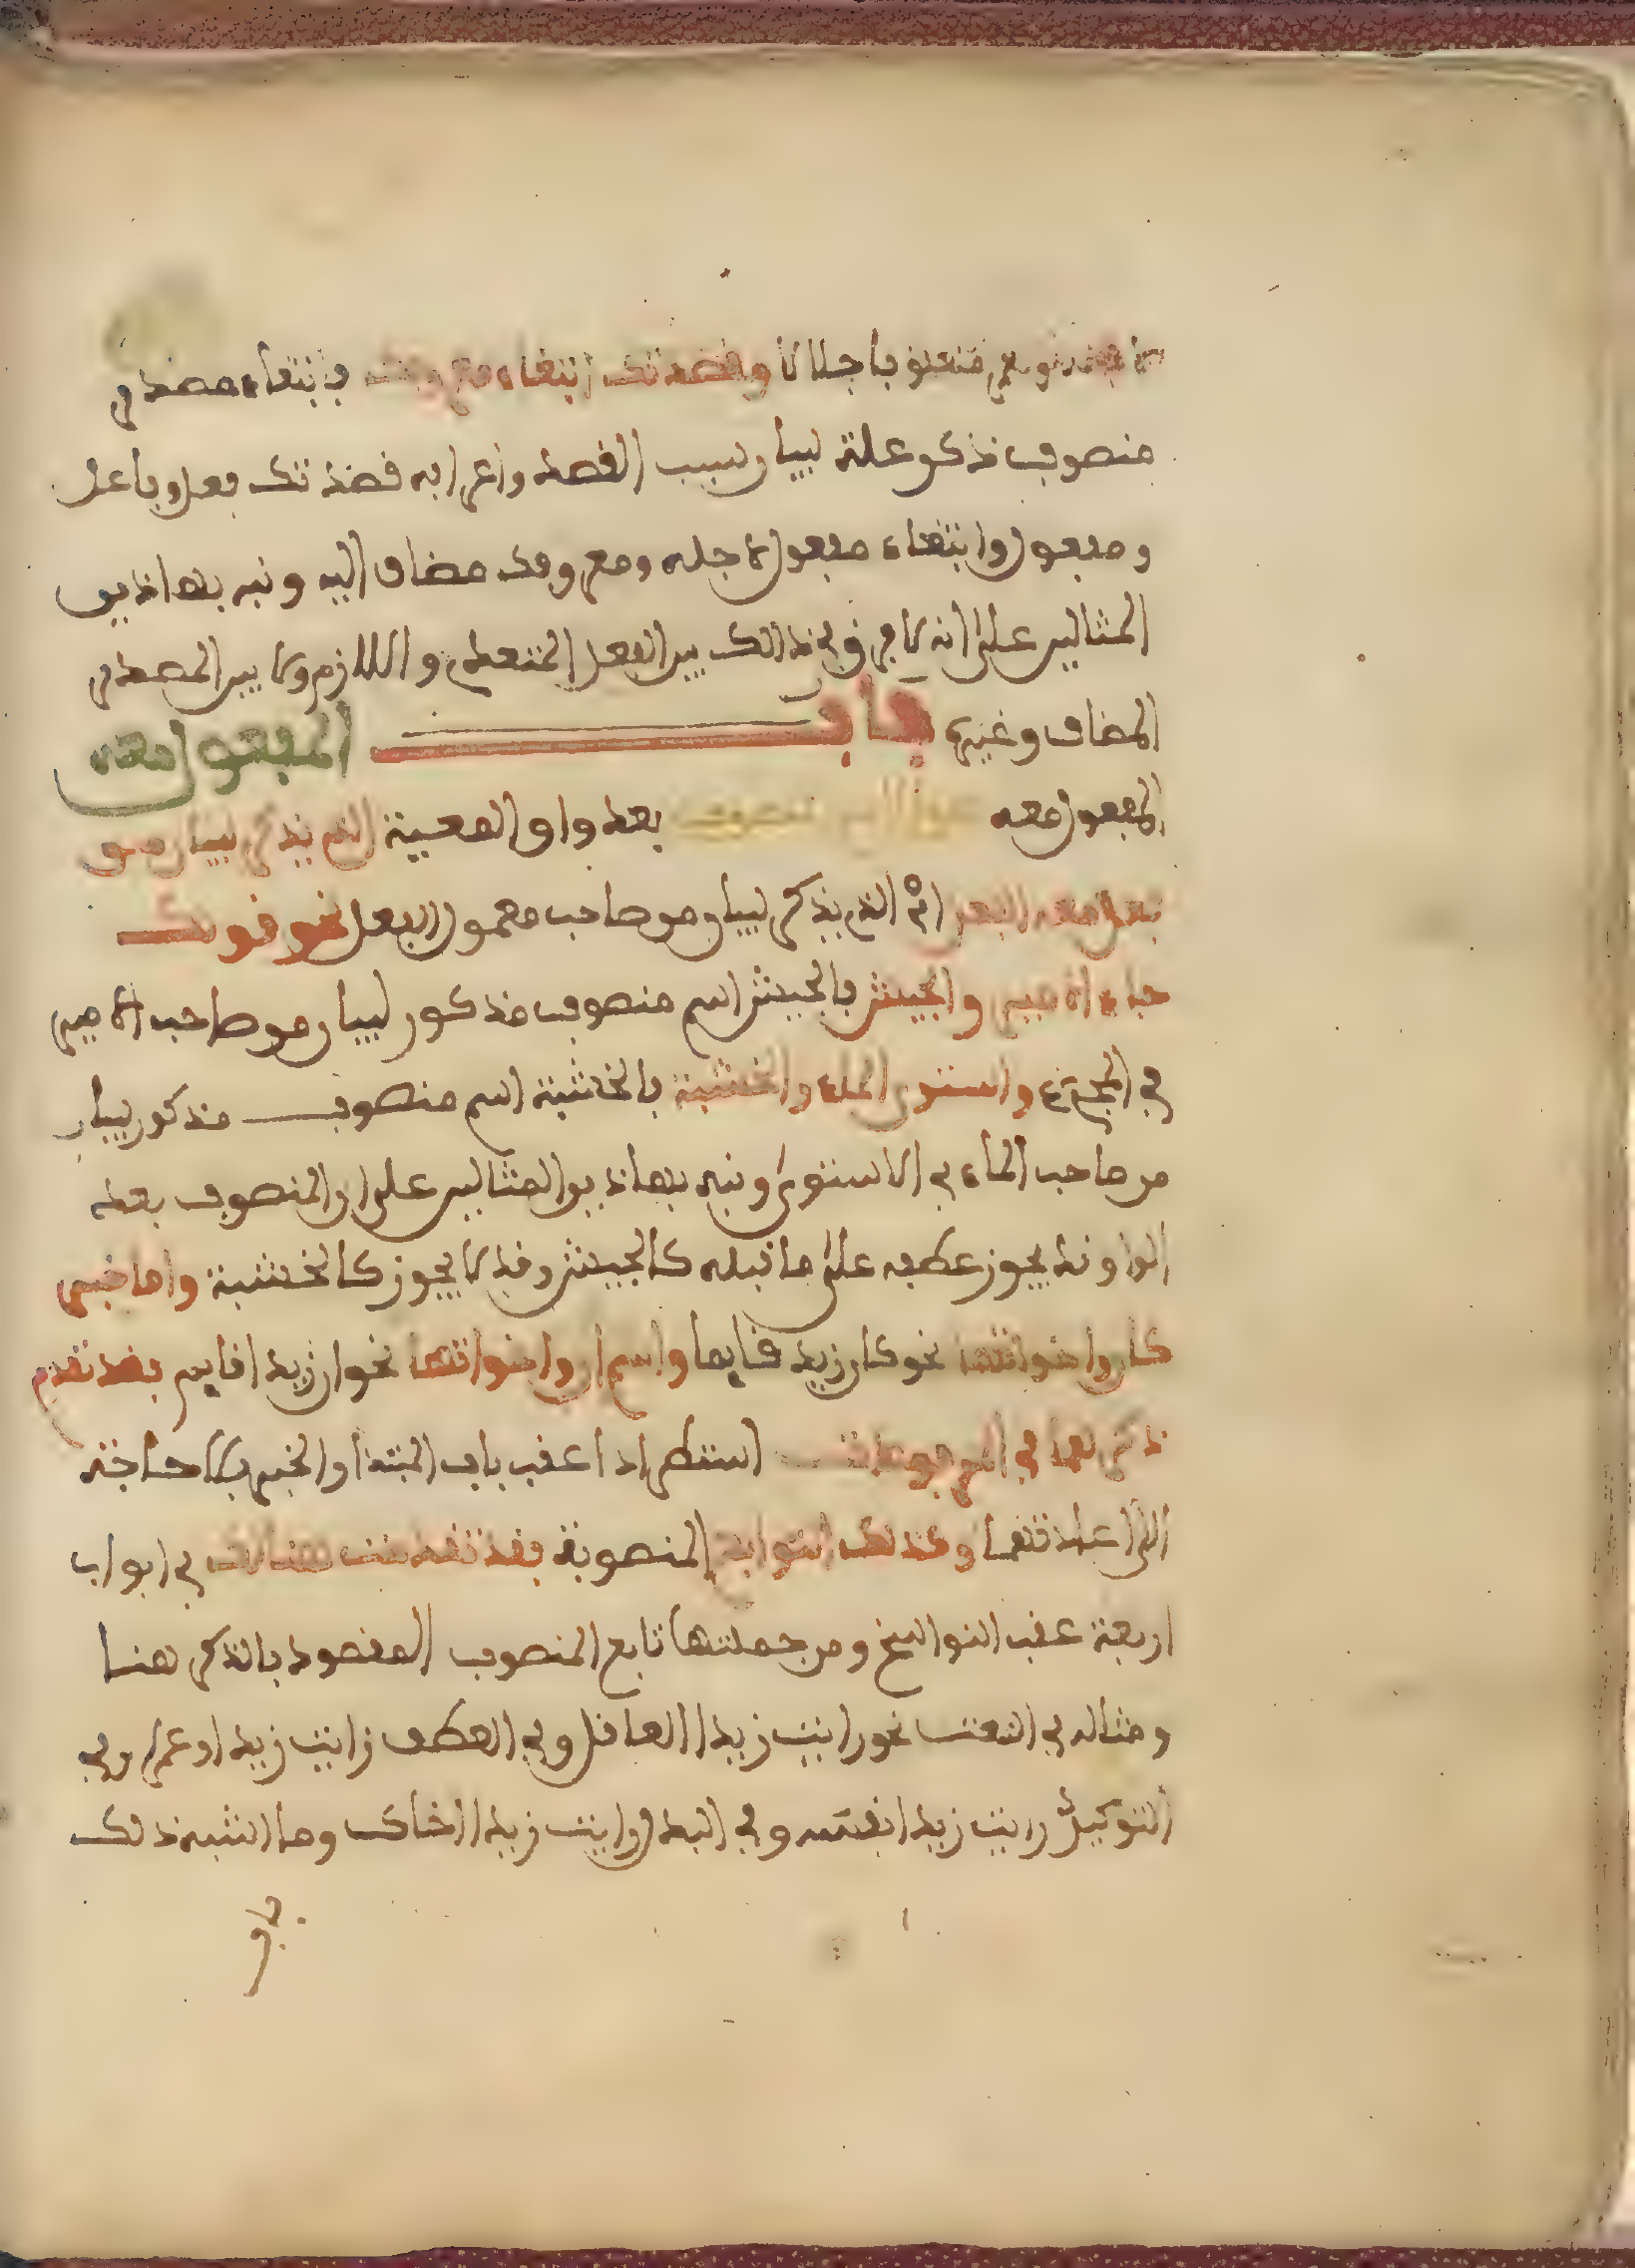 متعلق باجلالا وقصدتك ابتغاء معروفك فابتغاء مصدر
منصوب ذكر علة لبيان سبب القصد واعرابه قصدتك فعل وفاعل
ومفعول وابتغاء مفعول لاجله ومعروفك مضاف اليه ونبه بهاذين
المثالين على انه لا فرق في ذالك بين الفعل المتعدي واللازم ولا بين المصدر
المضاف وغيره باب المفعول معه
المفعول معه هو الاسم المنصوب بعد واو المعية الذي يذكر لبيان من
فعل معه الفعل اي الذي يذكر لبيان من صاحب معمول الفعل نحو قولك
جاء الامير والجيش فالجيش اسم منصوب مذكور لبيان من صاحب الامير
في المجيء واستوى الماء والخشبة فالخشبة اسم منصوب مذكور لبيان
من صاحب الماء في الاستوى ونبه بهاذين المثالين على ان المنصوب بعد
الواو قد يجوز عطفه على ما قبله كالجيش وقد لا يجوز كالخشبة واما خبر
كان واخواتها نحو كان زيد قايما واسم ان واخواتها نحو ان زيدا قايم فقد تقدم
ذكرهما في المرفوعات استطرادا عقب باب المبتدا والخبر فلا حاجة
الى اعادتهما وكذلك التوابع المنصوبة فقد تقدمت هنالك في ابواب
اربعة عقب النواسخ ومن جملتها تابع المنصوب المقصود بالذكر هنا
ومثاله في النعت نحو رايت زيدا العاقل وفي العطف رايت زيدا وعمرا وفي
التوكيد رايت زيدا نفسه وفي البدل رايت زيدا اخاك وما اشبه ذلك
باب